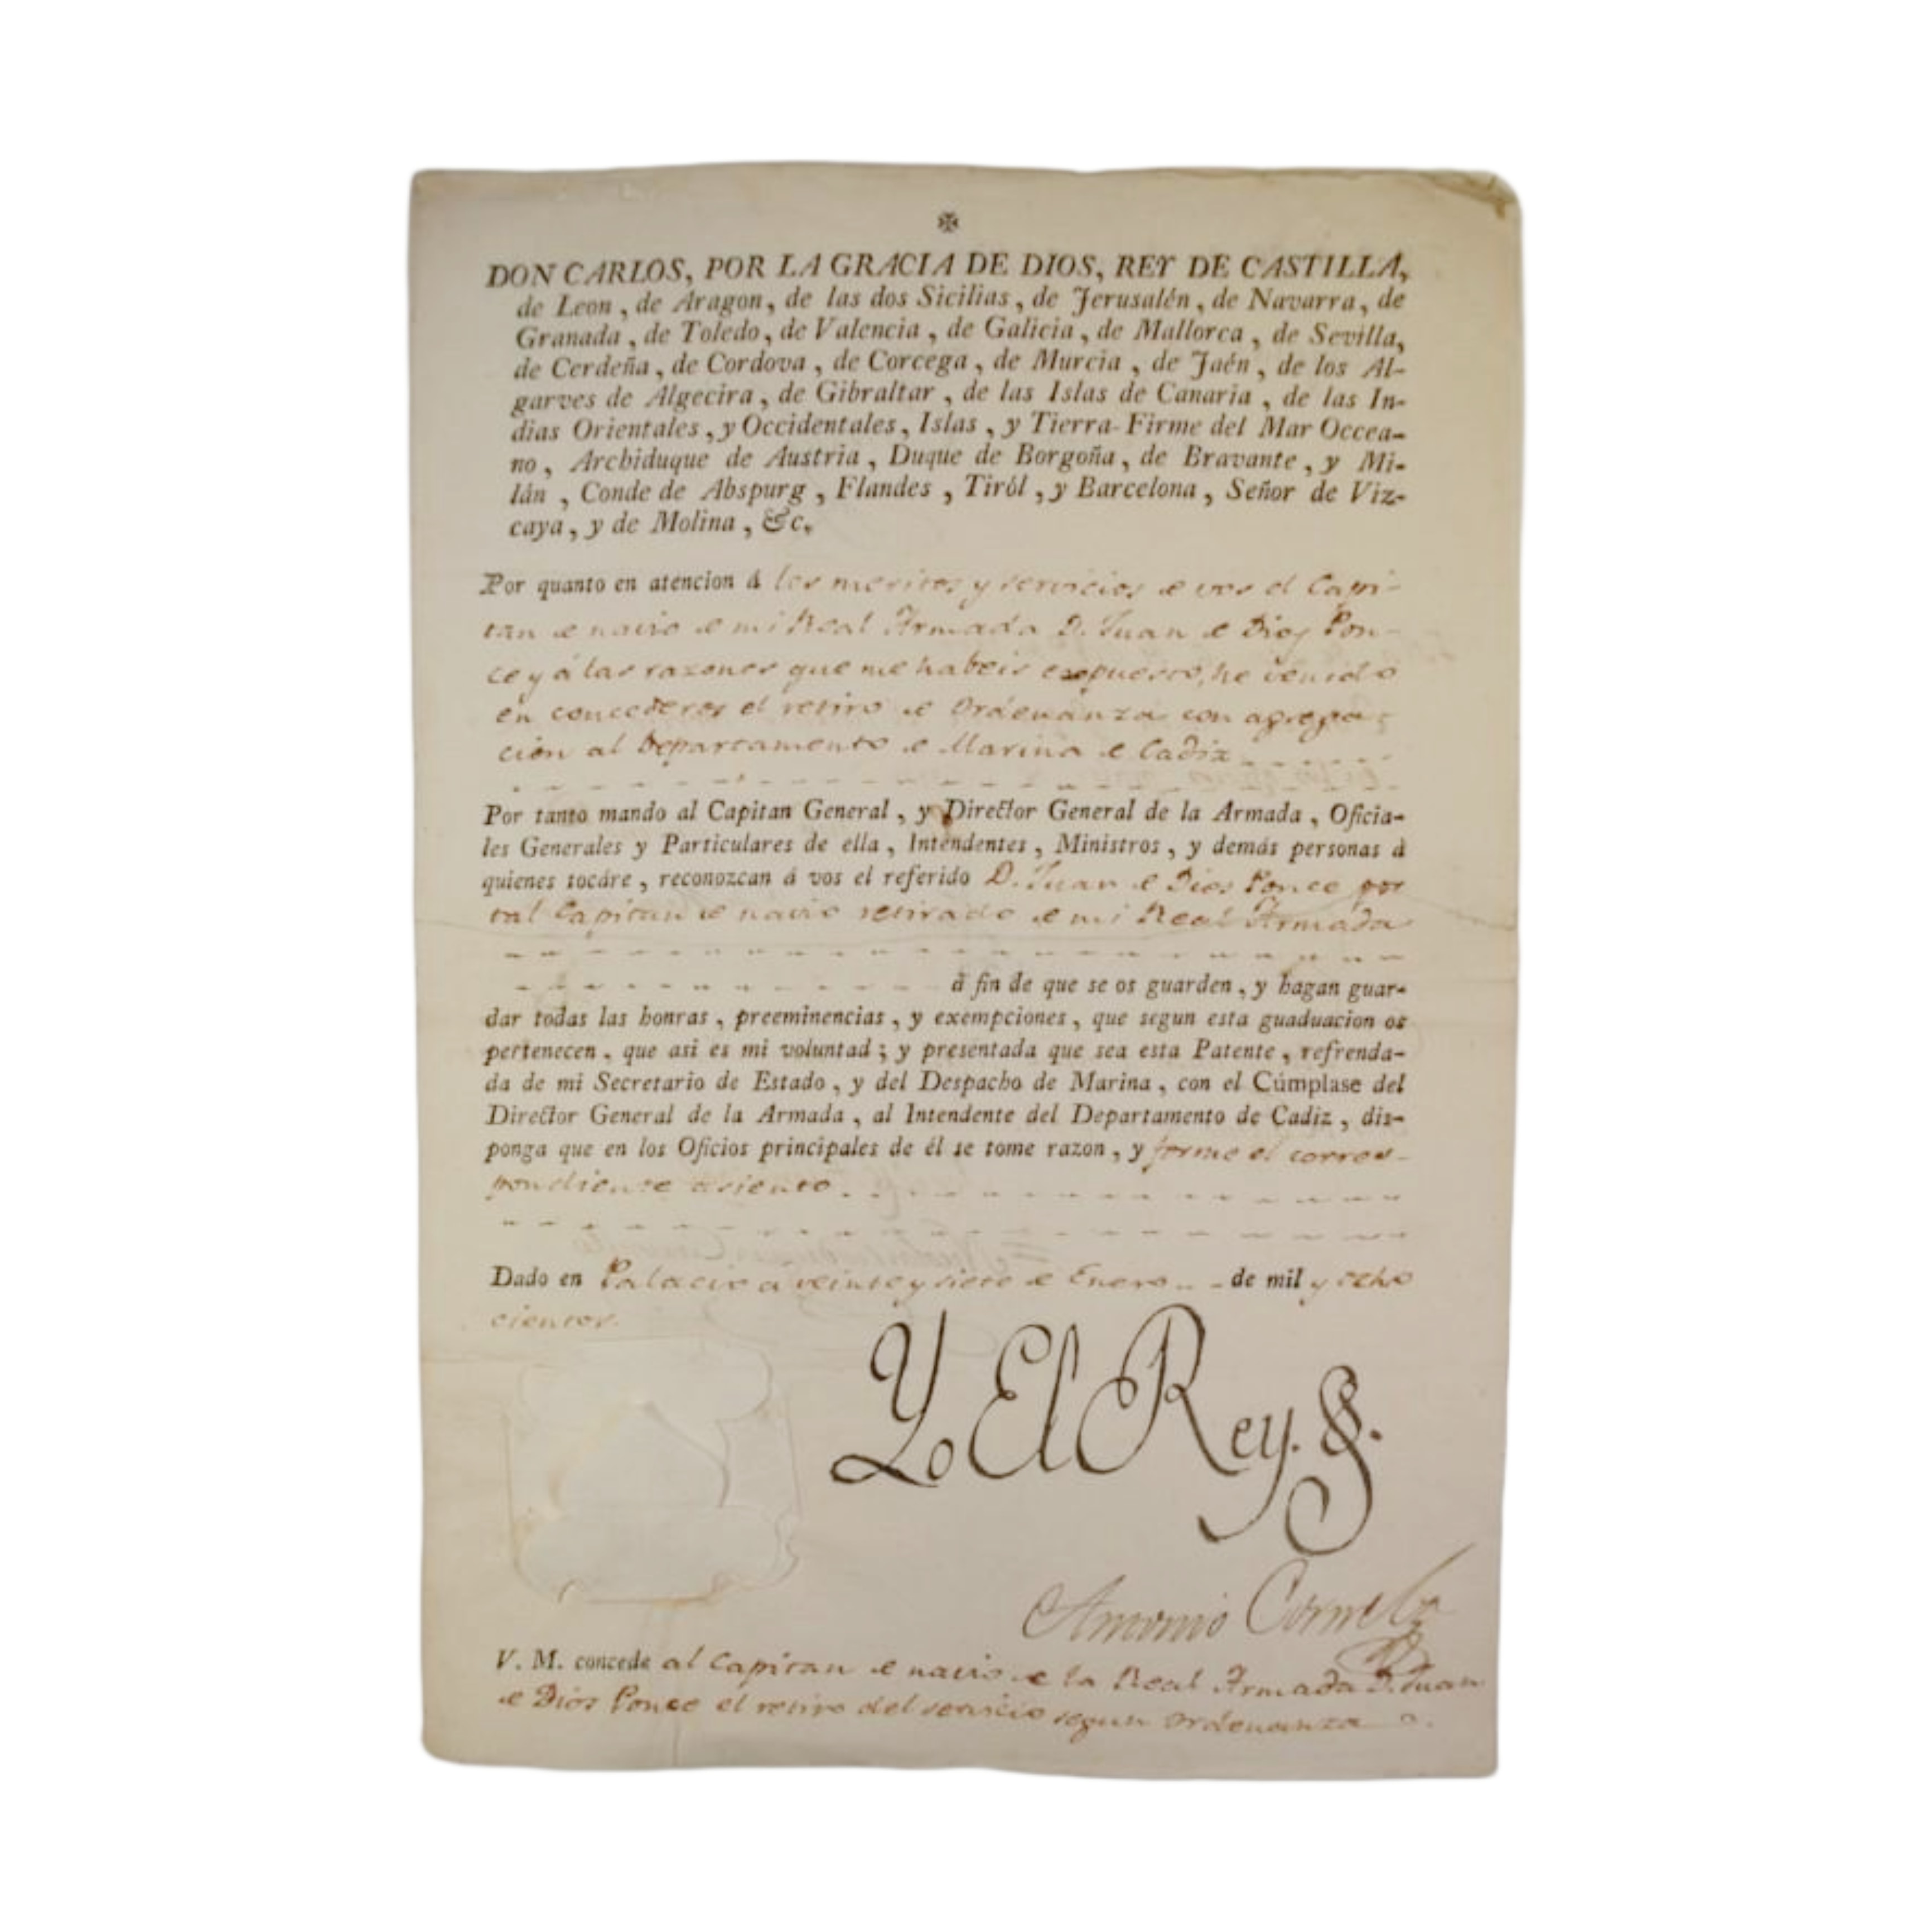 DON CARLOS, POR LA GRACIA DE DIOS, REY DE CASTILLA,
de Leon, de Aragon, de las dos Sicilias, de Jerusalén, de Navarra, de
Granada, de Toledo, de Valencia, de Galicia, de Mallorca, de Sevilla,
de Cerdeña, de Cordova, de Corcega, de Murcia, de Jaén, de los Al-
garves de Algecira, de Gibraltar, de las Islas de Canaria, de las In-
dias Orientales, y Occidentales, Islas, y Tierra-Firme del Mar Occea-
no, Archiduque de Austria, Duque de Borgoña, de Bravante, y Mi-
lán, Conde de Abspurg, Flandes, Tiról, y Barcelona, Señor de Viz-
caya, y de Molina, &c.
Por quanto en atencion á los meritos y servicios de vos el Capi-
tan de navio de mi Real Armada D. Juan de Dios Pon-
ce y á las razones que me habeis expuesto, he venido
en concederos el retiro de Ordenanza con agrega-
cion al Departamento de Marina de Cadiz
Por tanto mando al Capitan General, y Director General de la Armada, Oficia-
les Generales y Particulares de ella, Intendentes, Ministros, y demás personas á
quienes tocáre, reconozcan á vos el referido D. Juan de Dios Ponce por
tal Capitan de navio retirado de mi Real Armada
á fin de que se os guarden, y hagan guar-
dar todas las honras, preeminencias, y exempciones, que segun esta guaduacion os
pertenecen, que asi es mi voluntad; y presentada que sea esta Patente, refrenda-
da de mi Secretario de Estado, y del Despacho de Marina, con el Cúmplase del
Director General de la Armada, al Intendente del Departamento de Cadiz, dis-
ponga que en los Oficios principales de él se tome razon, y forme el corres-
pondiente asiento.
Dado en Palacio a veinte y siete de Enero de mil y ocho
cientos.
Yo El Rey.
Antonio Cornel
V. M. concede al Capitan de navio de la Real Armada D. Juan
de Dios Ponce el retiro del servicio segun Ordenanza